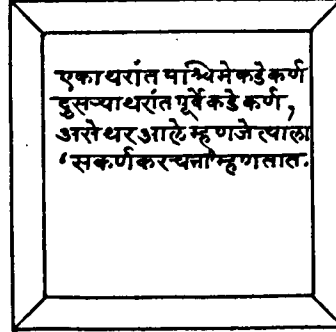 एका थरांत पश्चिमेकडे कर्ण
दुसऱ्या थरांत पूर्वेकडे कर्ण,
असे थर आले म्हणजे त्याला
'सकर्णकरचना' म्हणतात.